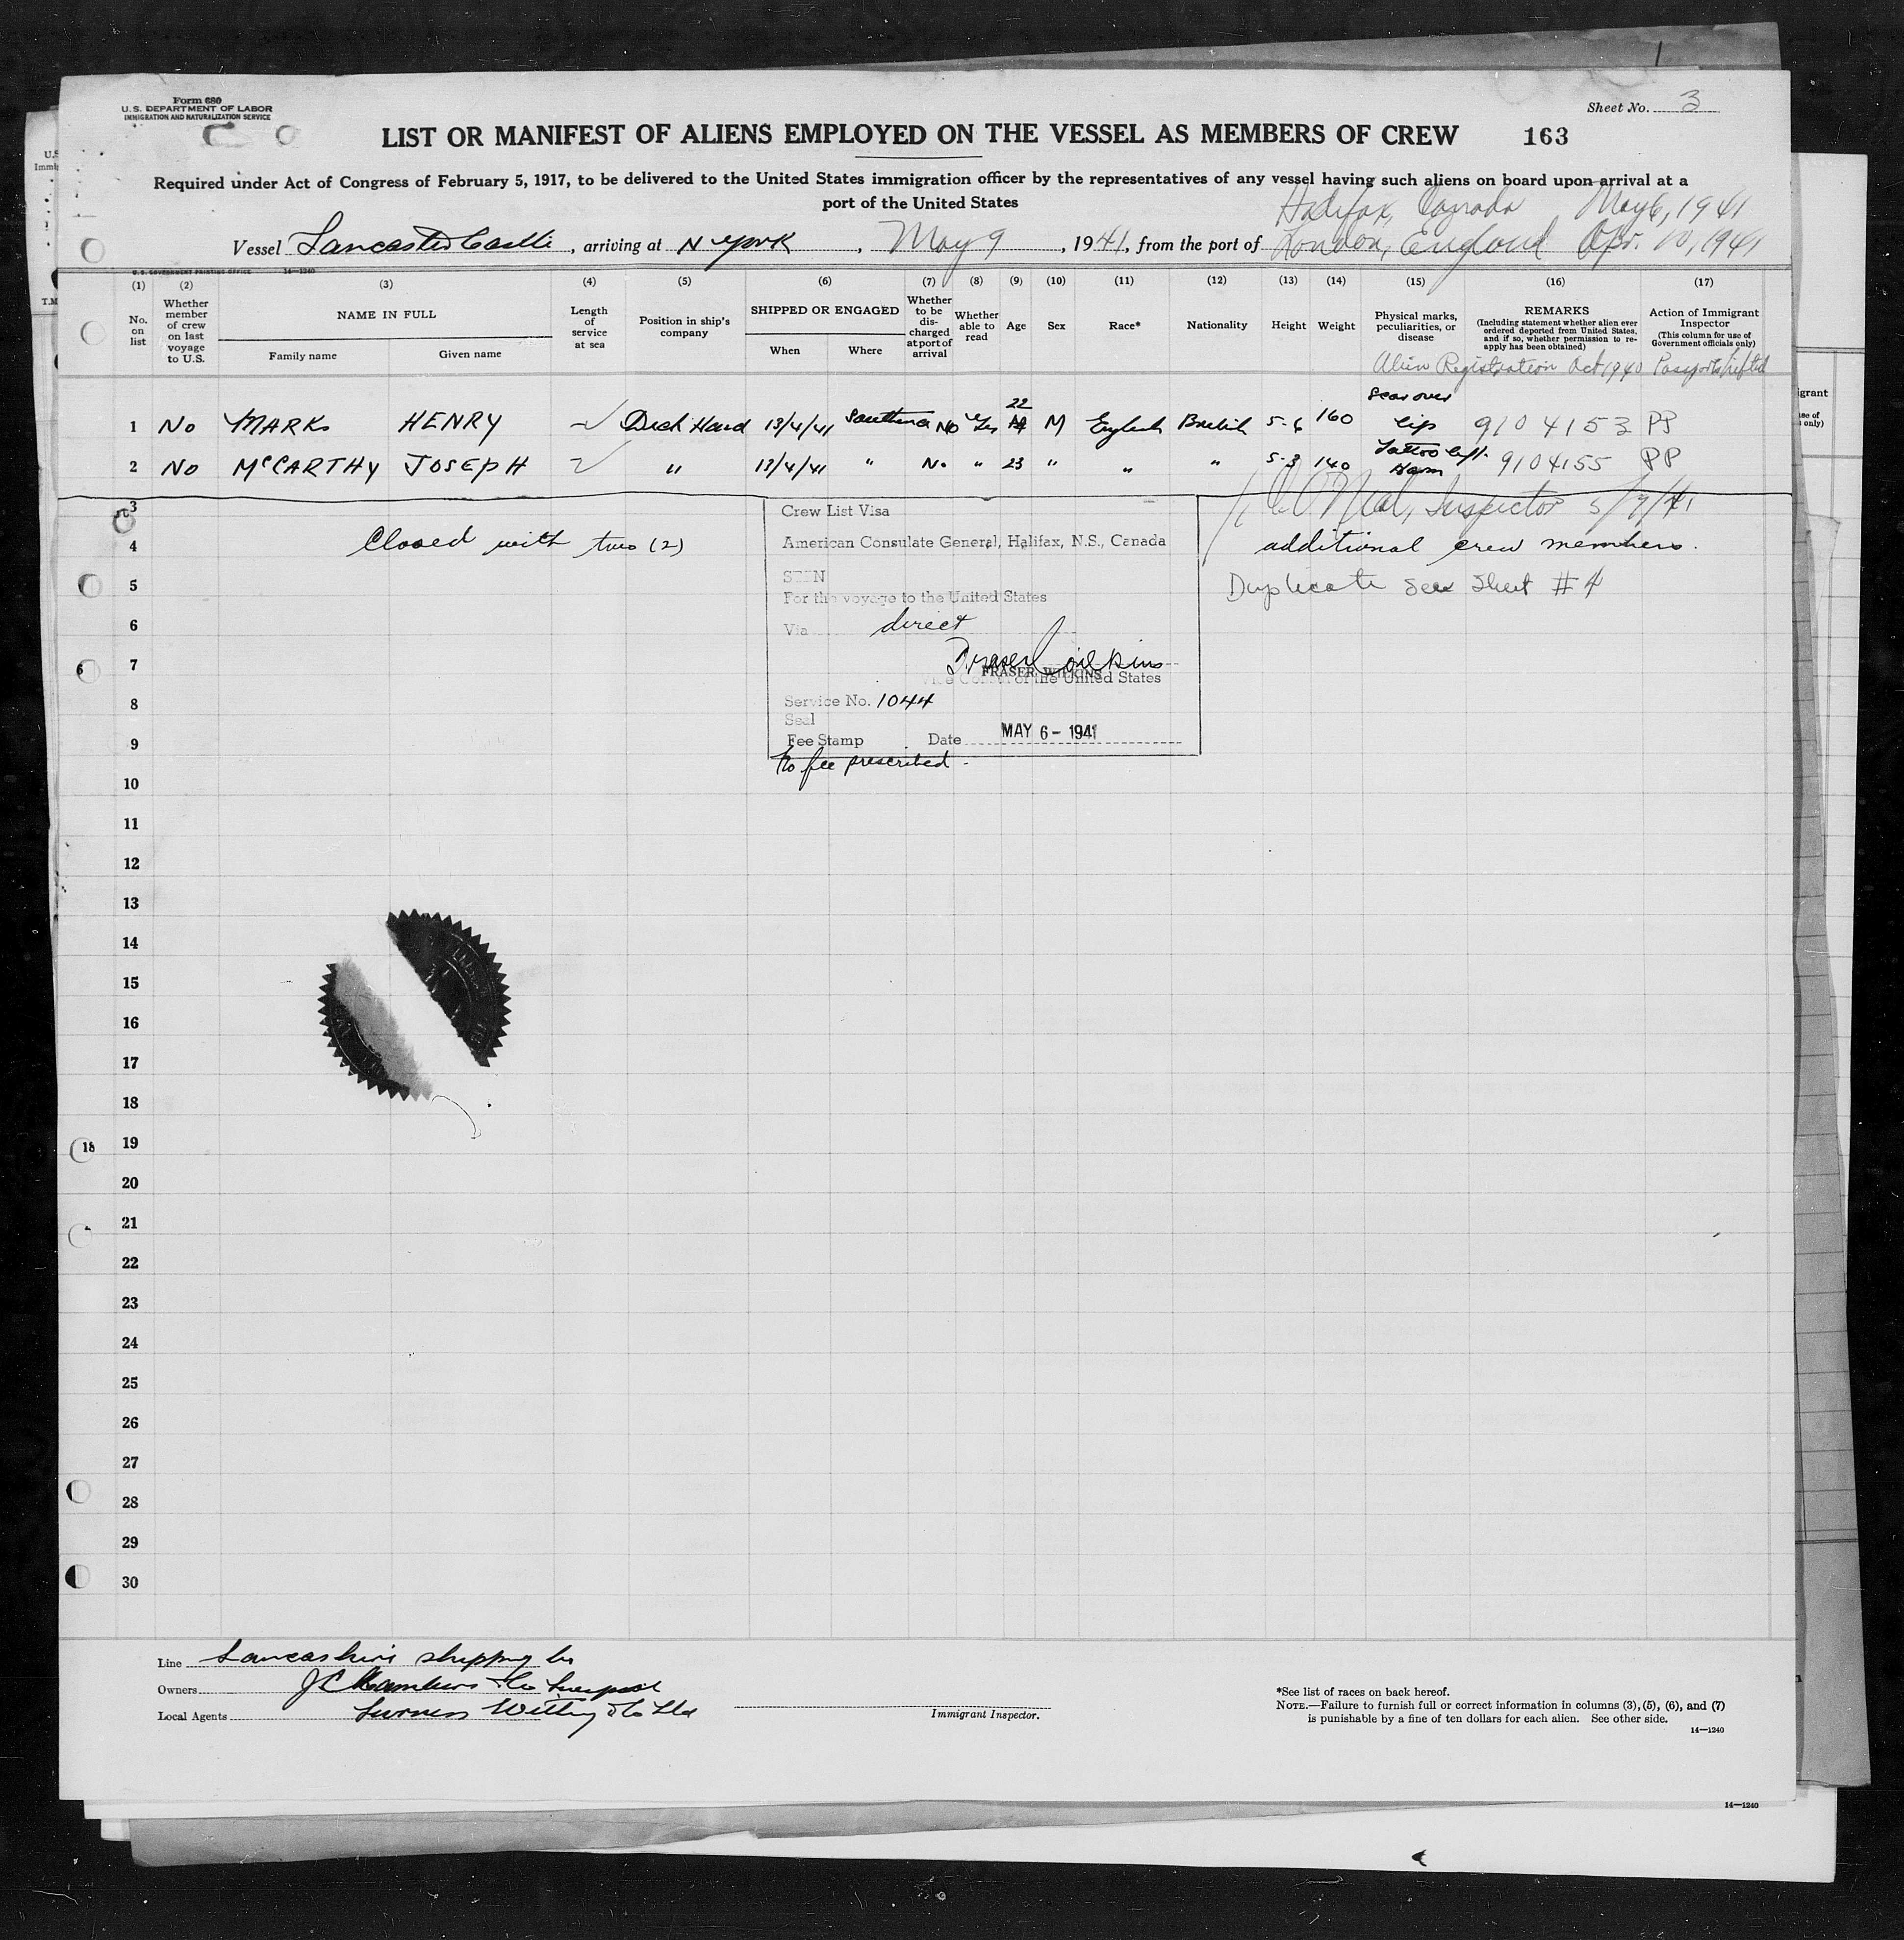 Form 680
U.S. DEPARTMENT OF LABOR
IMMIGRATION AND NATURALIZATION SERVICE
Sheet No. 3
LIST OR MANIFEST OF ALIENS EMPLOYED ON THE VESSEL AS MEMBERS OF CREW 163
Required under Act of Congress of February 5, 1917, to be delivered to the United States immigration officer by the representatives of any vessel having such aliens on board upon arrival at a
port of the United States
Halifax, Canada May 6, 1941
Vessel Lancaster Castle, arriving at N York, May 9, 1941, from the port of London, England Apr. 10, 1941
U.S. GOVERNMENT PRINTING OFFICE 14—1240
(1) (2) (3) (4) (5) (6) (7) (8) (9) (10) (11) (12) (13) (14) (15) (16) (17)
No. on list
Whether member of crew on last voyage to U.S.
NAME IN FULL
Family name Given name
Length of service at sea
Position in ship's company
SHIPPED OR ENGAGED
When Where
Whether to be discharged at port of arrival
Whether able to read
Age
Sex
Race*
Nationality
Height
Weight
Physical marks, peculiarities, or disease
REMARKS
(Including statement whether alien ever ordered deported from United States, and if so, whether permission to reapply has been obtained)
Action of Immigrant Inspector
(This column for use of Government officials only)
Alien Registration Oct 1940 Passports lifted
1 No MARKS HENRY Deck Hand 13/4/41 No Yes 22 M English British 5-6 160 Scar over lip 9104153 PP
2 No McCARTHY JOSEPH " 13/4/41 " No " 23 " " " 5-3 140 Tattoo left arm 9104155 PP
Inspector 5/9/41
3
4 Closed with two (2) additional crew members.
Duplicate see Sheet #4
Crew List Visa
American Consulate General, Halifax, N.S., Canada
SEEN
For the voyage to the United States
Via direct
Fraser Wilkins
FRASER WILKINS
Vice Consul of the United States
Service No. 1044
Seal
Fee Stamp Date MAY 6 - 1941
No fee prescribed.
5
6
7
8
9
10
11
12
13
14
15
16
17
18
19
20
21
22
23
24
25
26
27
28
29
30
6
18
Line Lancashire Shipping Co
Owners J Chambers & Co Liverpool
Local Agents Furness Withy & Co Ltd
Immigrant Inspector.
*See list of races on back hereof.
NOTE.—Failure to furnish full or correct information in columns (3), (5), (6), and (7)
is punishable by a fine of ten dollars for each alien. See other side.
14—1240
14—1240